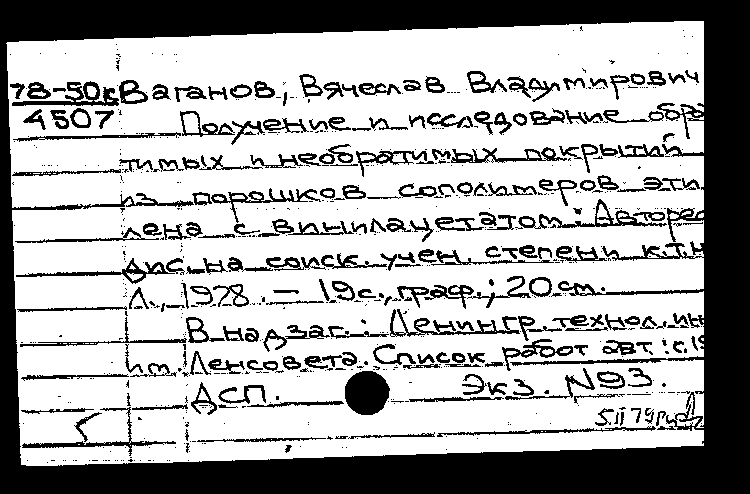 78-50к Ваганов, Вячеслав Владимирович
4507 Получение и исследование обра
тимых и необратимых покрытий
из порошков сополимеров эти
лена с винилацетатом: Авторе
дис. на соиск. учен. степени к.т.н
Л., 1978. – 19 с., граф.; 20 см.
В надзаг.: Ленингр. технол. ин
им. Ленсовета. Список работ авт.: с. 19
ДСП. Экз. №93.
5.II 79